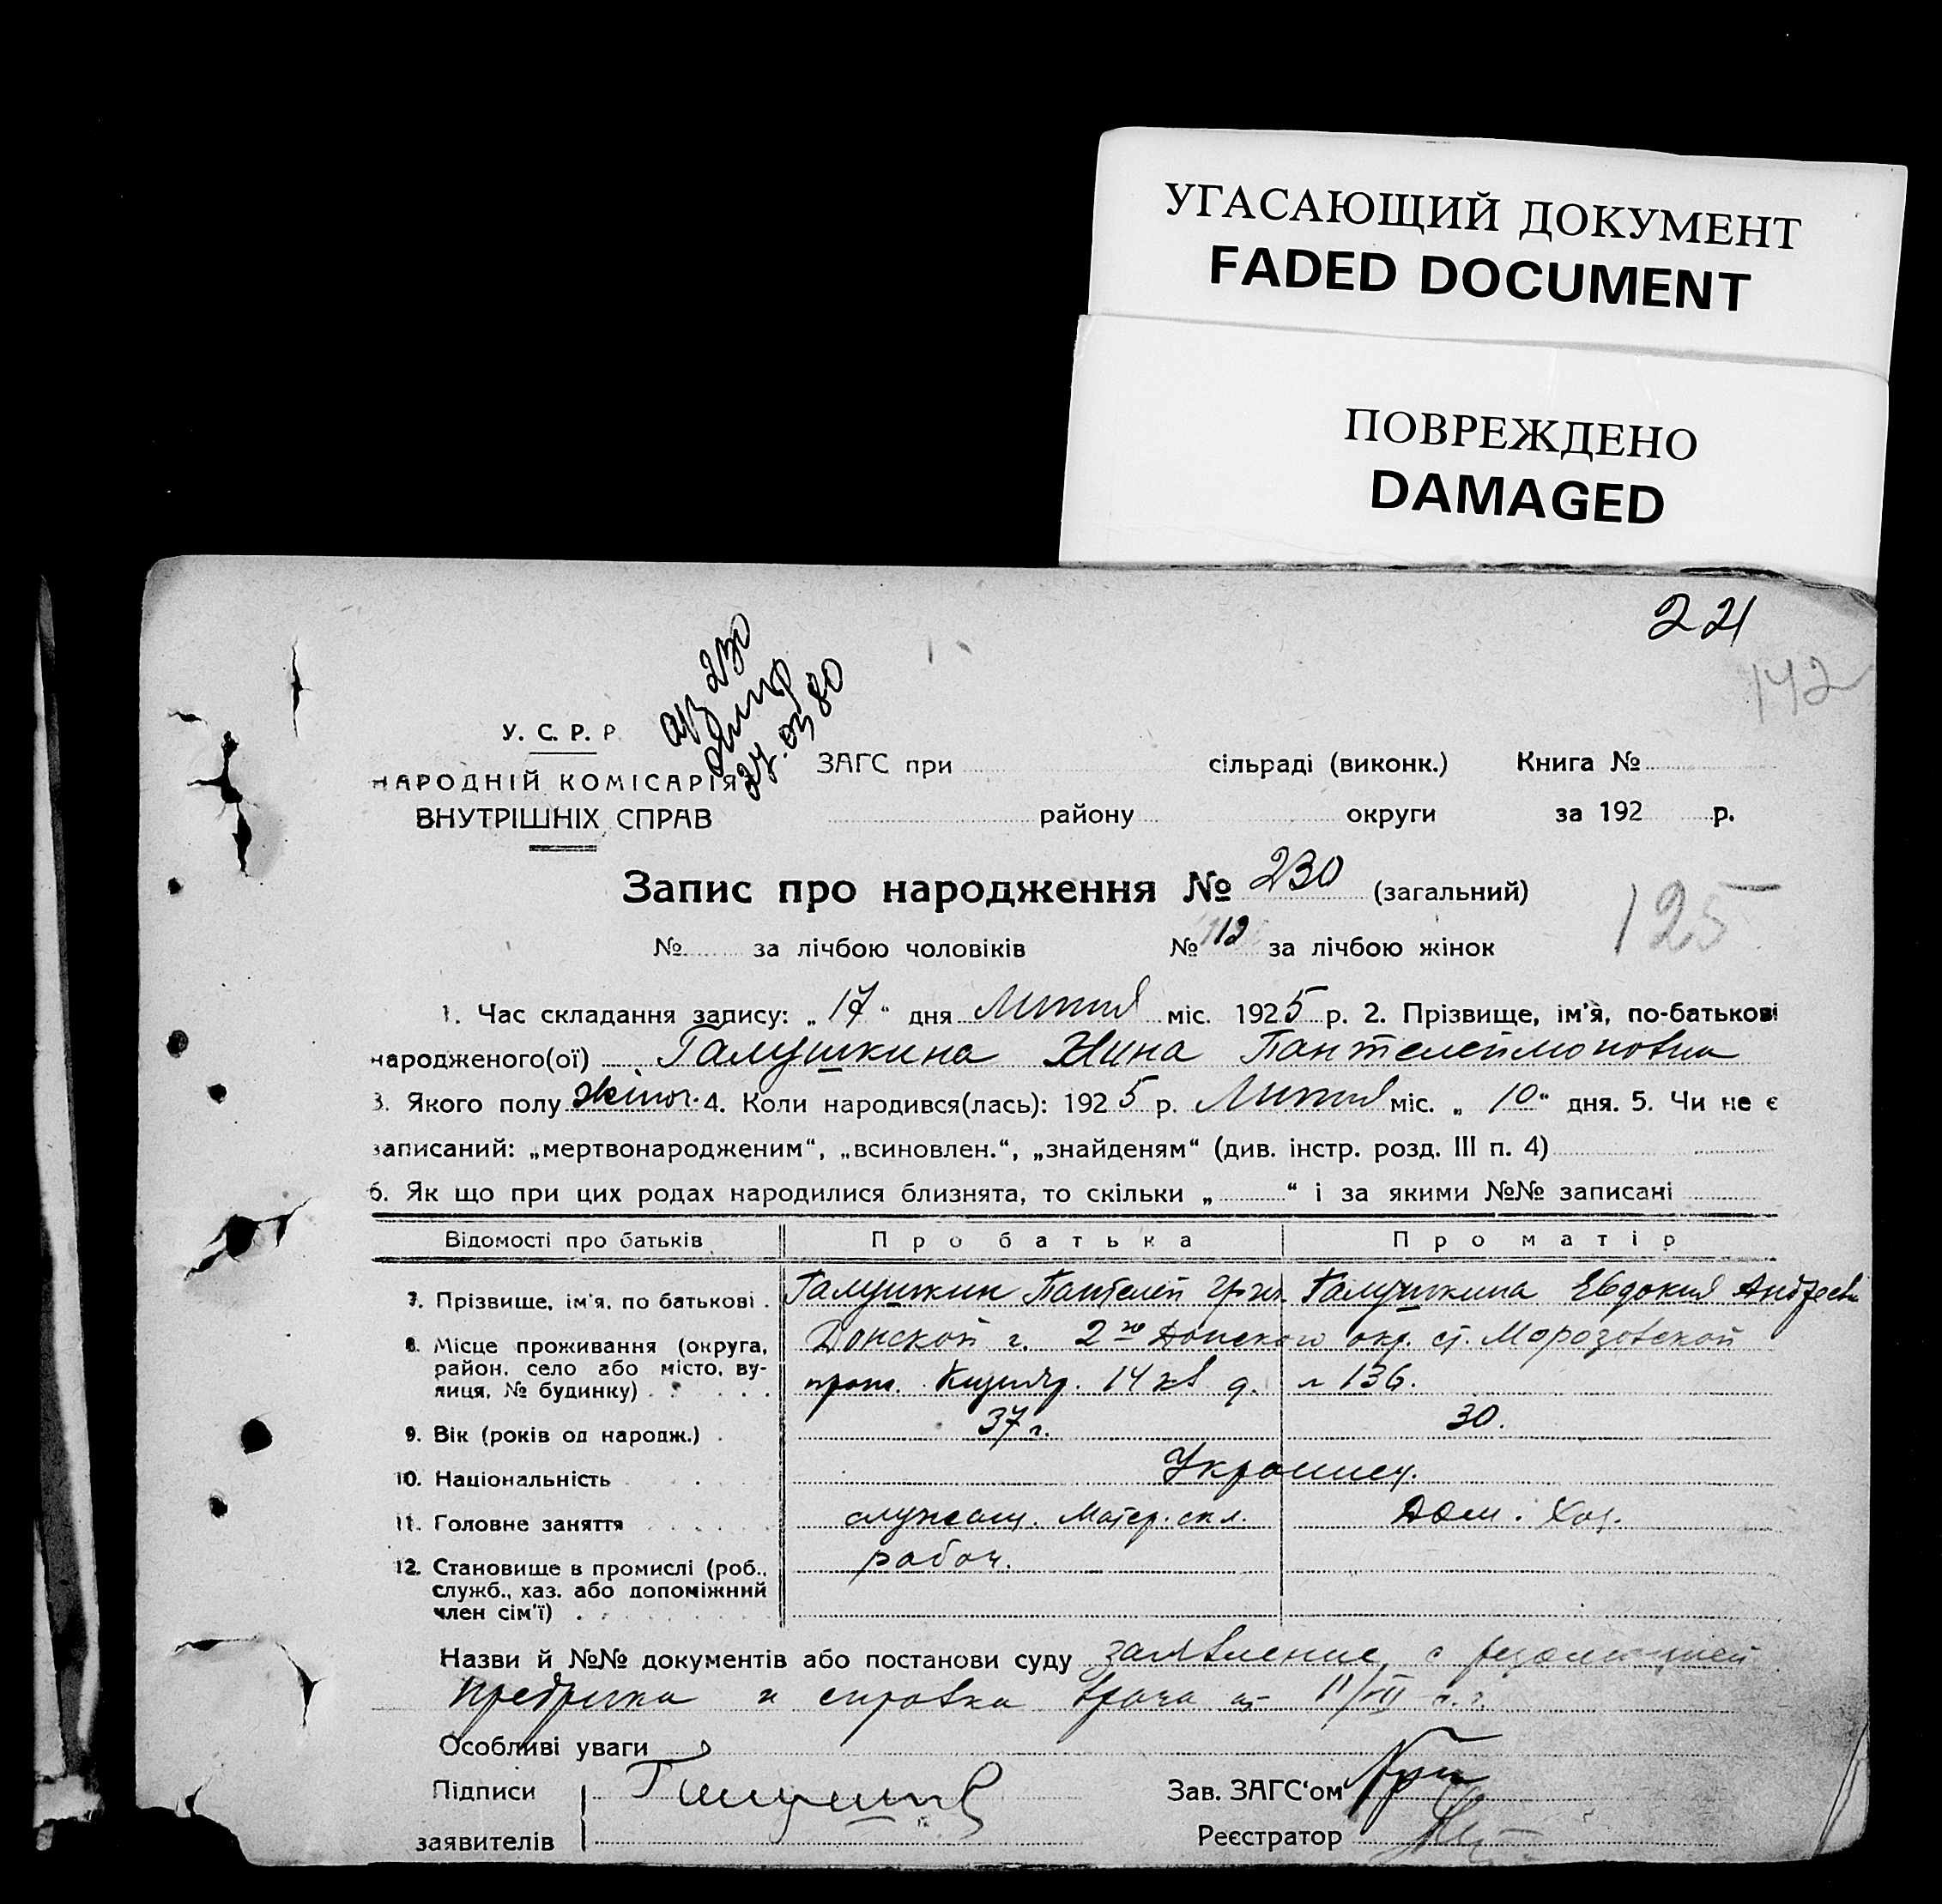 УГАСАЮЩИЙ ДОКУМЕНТ
FADED DOCUMENT
ПОВРЕЖДЕНО
DAMAGED
221
142
230
80
У. С. Р. Р.
НАРОДНІЙ КОМІСАРІЯ
ВНУТРІШНІХ СПРАВ
ЗАГС при сільраді (виконк.) Книга №
району округи за 192 р.
Запис про народження № 230 (загальний)
125
№ за лічбою чоловіків № 112 за лічбою жінок
1. Час складання запису: „ 17 “ дня Липня міс. 1925 р. 2. Прізвище, ім'я, по-батькові
народженого(ої) Галушкина Нина Пантелеймоновна
3. Якого полу жіноч. 4. Коли народився(лась): 1925 р. Липня міс. „ 10 “ дня. 5. Чи не є
записаний: „мертвонародженим“, „всиновлен.“, „знайденям“ (див. інстр. розд. III п. 4)
6. Як що при цих родах народилися близнята, то скільки „ “ і за якими №№ записані
Відомості про батьків Про батька Про матір
7. Прізвище, ім'я, по батькові . Галушкин Пантелей Галушкина Евдокия Андреевн
8. Місце проживання (округа, Донской г. 2го Донского окр. ст. Морозовской
район, село або місто, ву-
лиця, № будинку) . . . . . 14 кв д. № 136.
9. Вік (років од народж.) . 37 г. 30.
10. Національність Украинец.
11. Головне заняття служащ. Матер. скл. Дом. Хоз.
12. Становище в промислі (роб., рабоч.
служб., хаз. або допоміжний
член сім'ї)
Назви й №№ документів або постанови суду заявление с резолюцией
и справка врача от 11/VII с. г.
Особливі уваги
Підписи
заявителів
Зав. ЗАГС'ом
Реєстратор